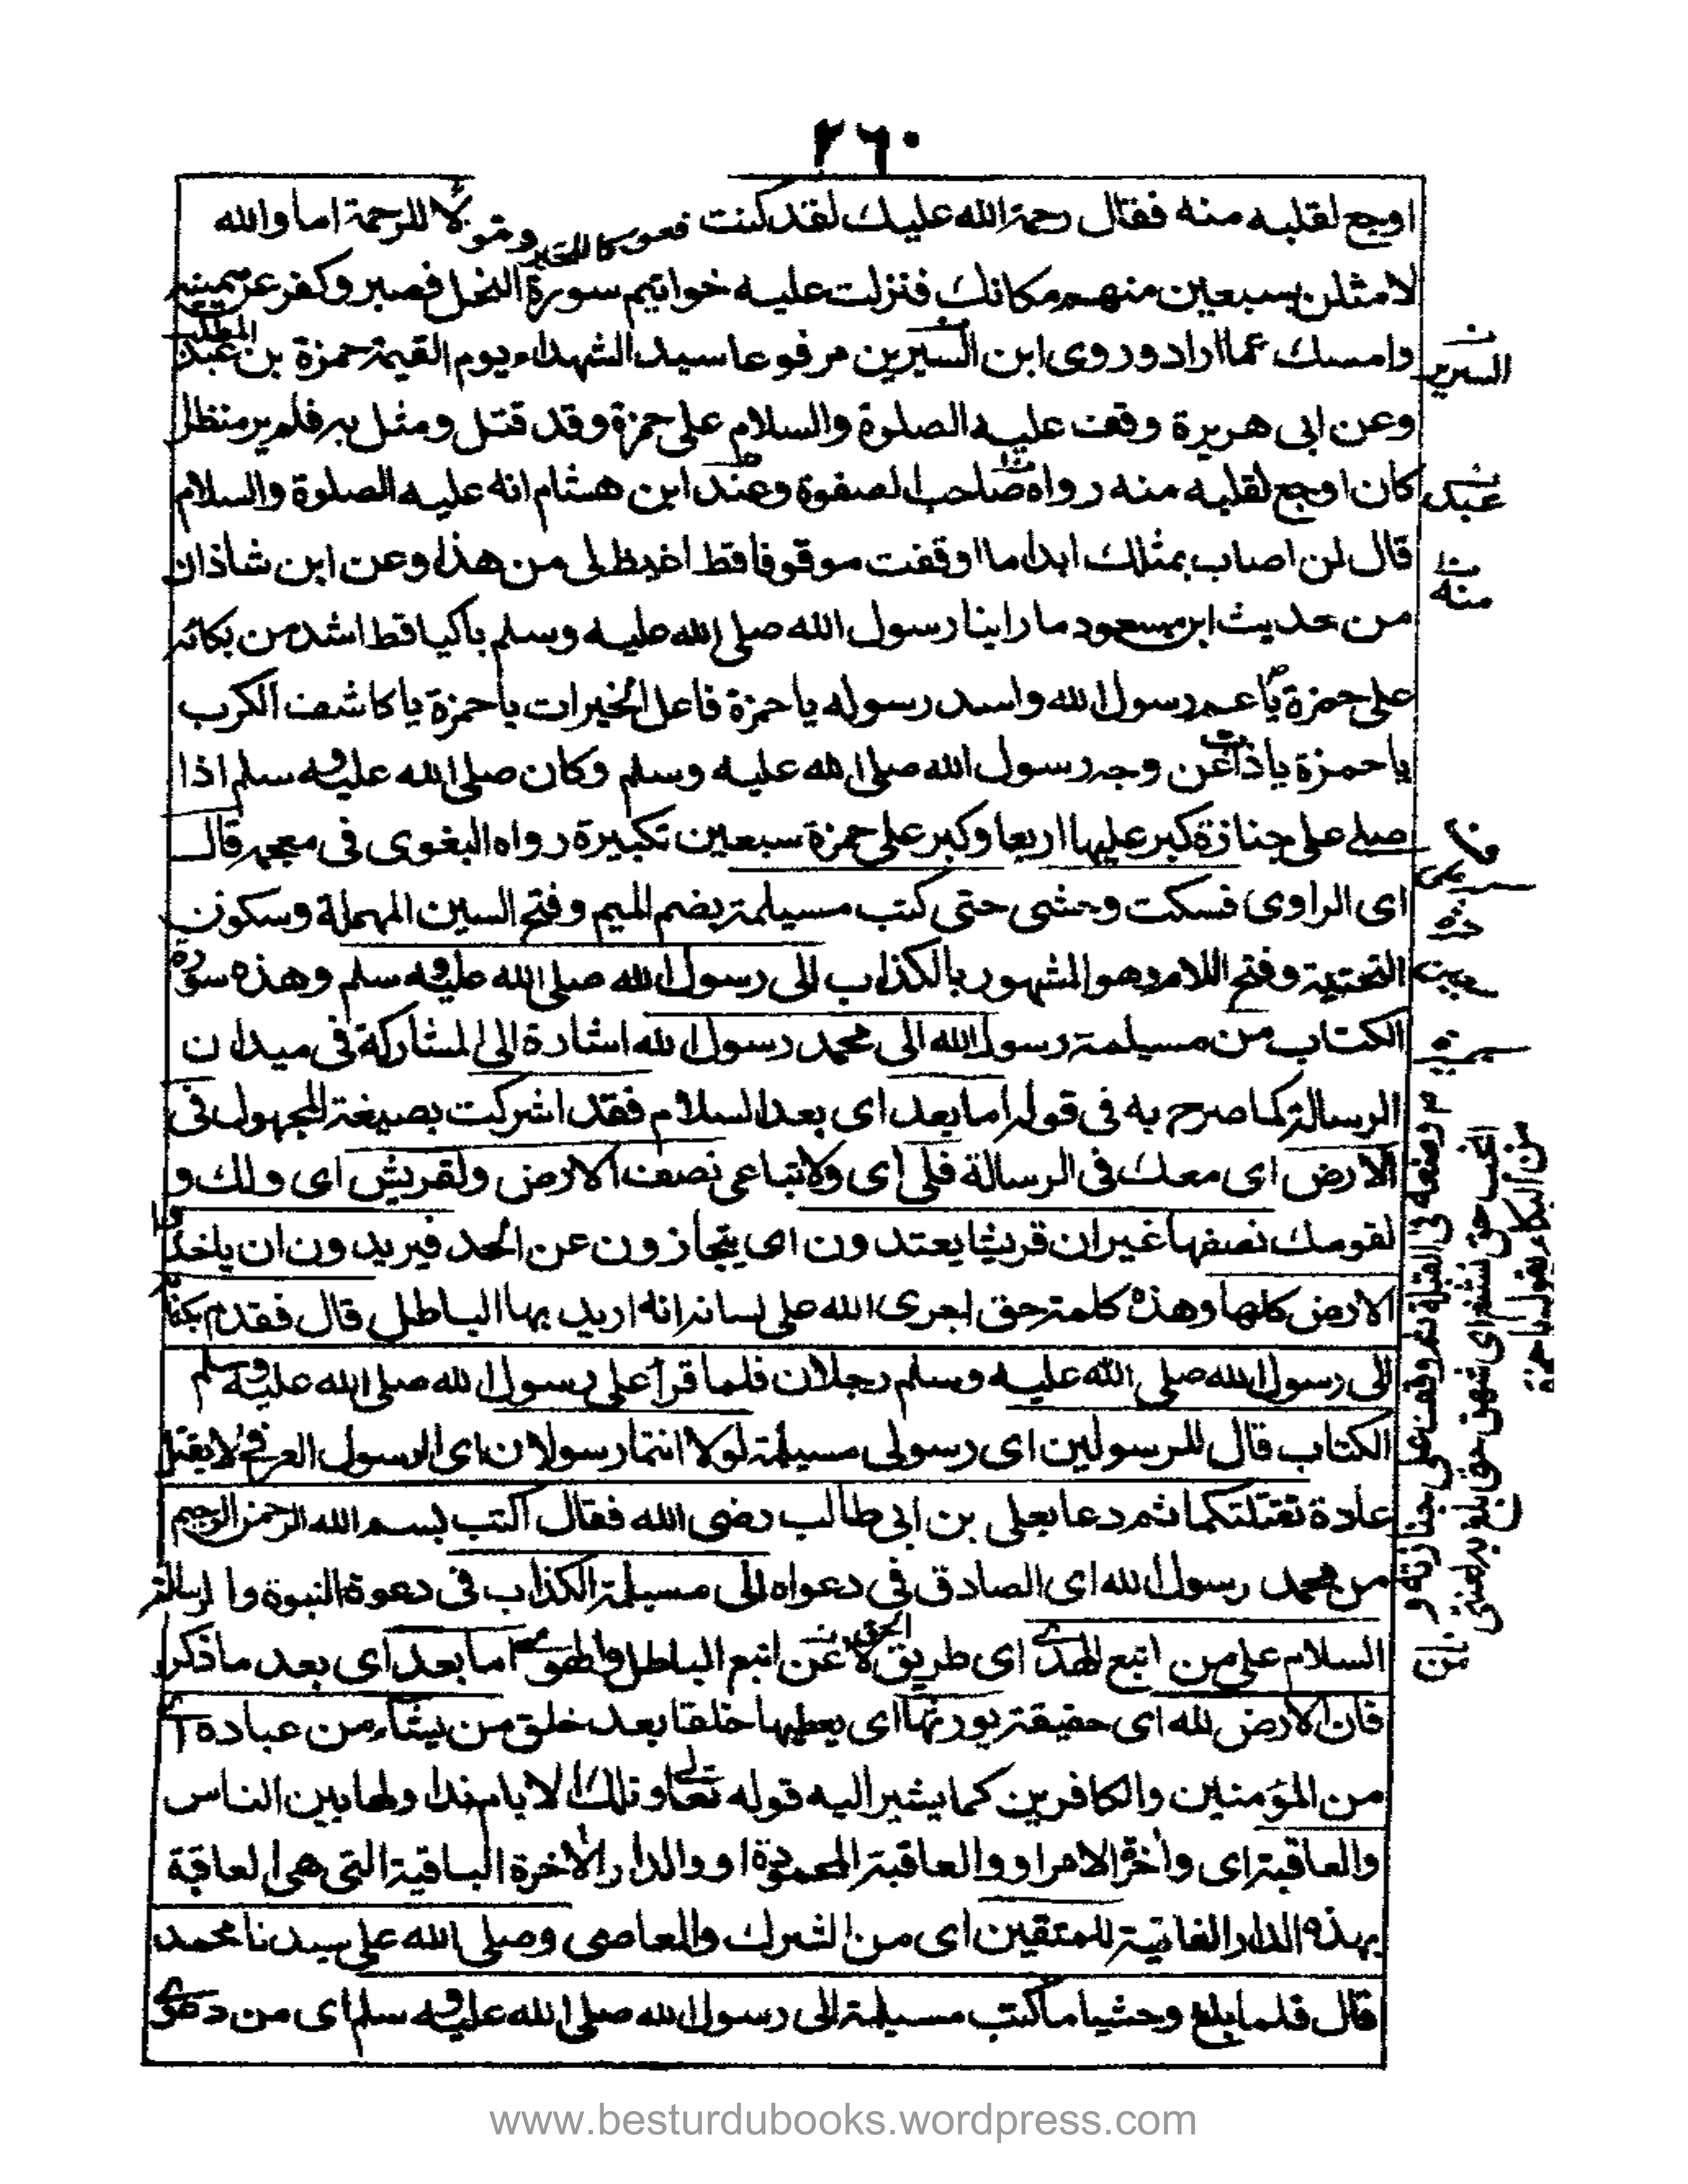 ٢٦٠
اوجع لقلبه منه فقال رحمة الله عليك لقد كنت فعولا للخير وصولا للرحمة اما والله
لامثلن بسبعين منهم مكانك فنزلت عليه خواتيم سورة النحل فصبر وكفر عن يمينه
وامسك عما اراد وروى ابن السيرين مرفوعا سيد الشهداء يوم القيمة حمزة بن عبد المطلب
وعن ابى هريرة وقف عليه الصلوة والسلام على حمزة وقد قتل ومثل به فلم ير منظرا
كان اوجع لقلبه منه رواه صاحب الصفوة وعند ابن هشام انه عليه الصلوة والسلام
قال لن اصاب بمثلك ابدا ما وقفت موقوفا قط اغيظ لى من هذا وعن ابن شاذان
من حديث ابن مسعود ما راينا رسول الله صلى الله عليه وسلم باكيا قط اشد من بكائه
على حمزة يا عم رسول الله واسد رسوله يا حمزة فاعل الخيرات يا حمزة يا كاشف الكرب
يا حمزة يا ذاب عن وجه رسول الله صلى الله عليه وسلم وكان صلى الله عليه وسلم اذا
صلى على جنازة كبر عليها اربعا وكبر على حمزة سبعين تكبيرة رواه البغوى فى معجمه قال
اى الراوى فسكت وحشى حتى كتب مسيلمة بضم الميم وفتح السين المهملة وسكون
التحتية وفتح اللام وهو المشهور بالكذاب الى رسول الله صلى الله عليه وسلم وهذه سورة
الكتاب من مسيلمة رسول الله الى محمد رسول الله اشارة الى المشاركة فى ميدان
الرسالة كما صرح به فى قوله اما بعد اى بعد السلام فقد اشركت بصيغة المجهول فى
الارض اى معك فى الرسالة فلى اى ولاتباعى نصف الارض ولقريش اى ولك و
لقومك نصفها غير ان قريشا يعتدون اى يتجازون عن الحد فيريدون ان ياخذوا
الارض كلها وهذه كلمة حق اجرى الله على لسانه انه اريد بها الباطل قال فقدم بكتابه
الى رسول الله صلى الله عليه وسلم رجلان فلما قرأ على رسول الله صلى الله عليه وسلم
الكتاب قال للرسولين اى رسولى مسيلمة لولا انتما رسولان اى الرسول العرفى لا يقتل
عادة لقتلتكما ثم دعا بعلى بن ابى طالب رضى الله فقال اكتب بسم الله الرحمن الرحيم
من محمد رسول الله اى الصادق فى دعواه الى مسيلمة الكذاب فى دعوة النبوة والرسالة
السلام على من اتبع الهدى اى طريق الحق لا عن اتبع الباطل والهوى اما بعد اى بعد ما ذكر
فان الارض لله اى حقيقة يورثها اى يعطيها خلقا بعد خلق من يشاء من عباده اى
من المؤمنين والكافرين كما يشير اليه قوله تعالى وتلك الايام نداولها بين الناس
والعاقبة اى واخرة الامر او والعاقبة المحمودة او والدار الاخرة الباقية التى هى العاقبة
بهذه الدار الفانية للمتقين اى من الشرك والمعاصى وصلى الله على سيدنا محمد
قال فلما بلغ وحشيا ما كتب مسيلمة الى رسول الله صلى الله عليه وسلم اى من دعوى
السرير
عبد
منه
وضعه فى القبلة ثم وقف على جنازته و
انتحب حتى نشغ اى شهق حتى بلغ به الغشى
من البكاء يقول يا حمزة
www.besturdubooks.wordpress.com